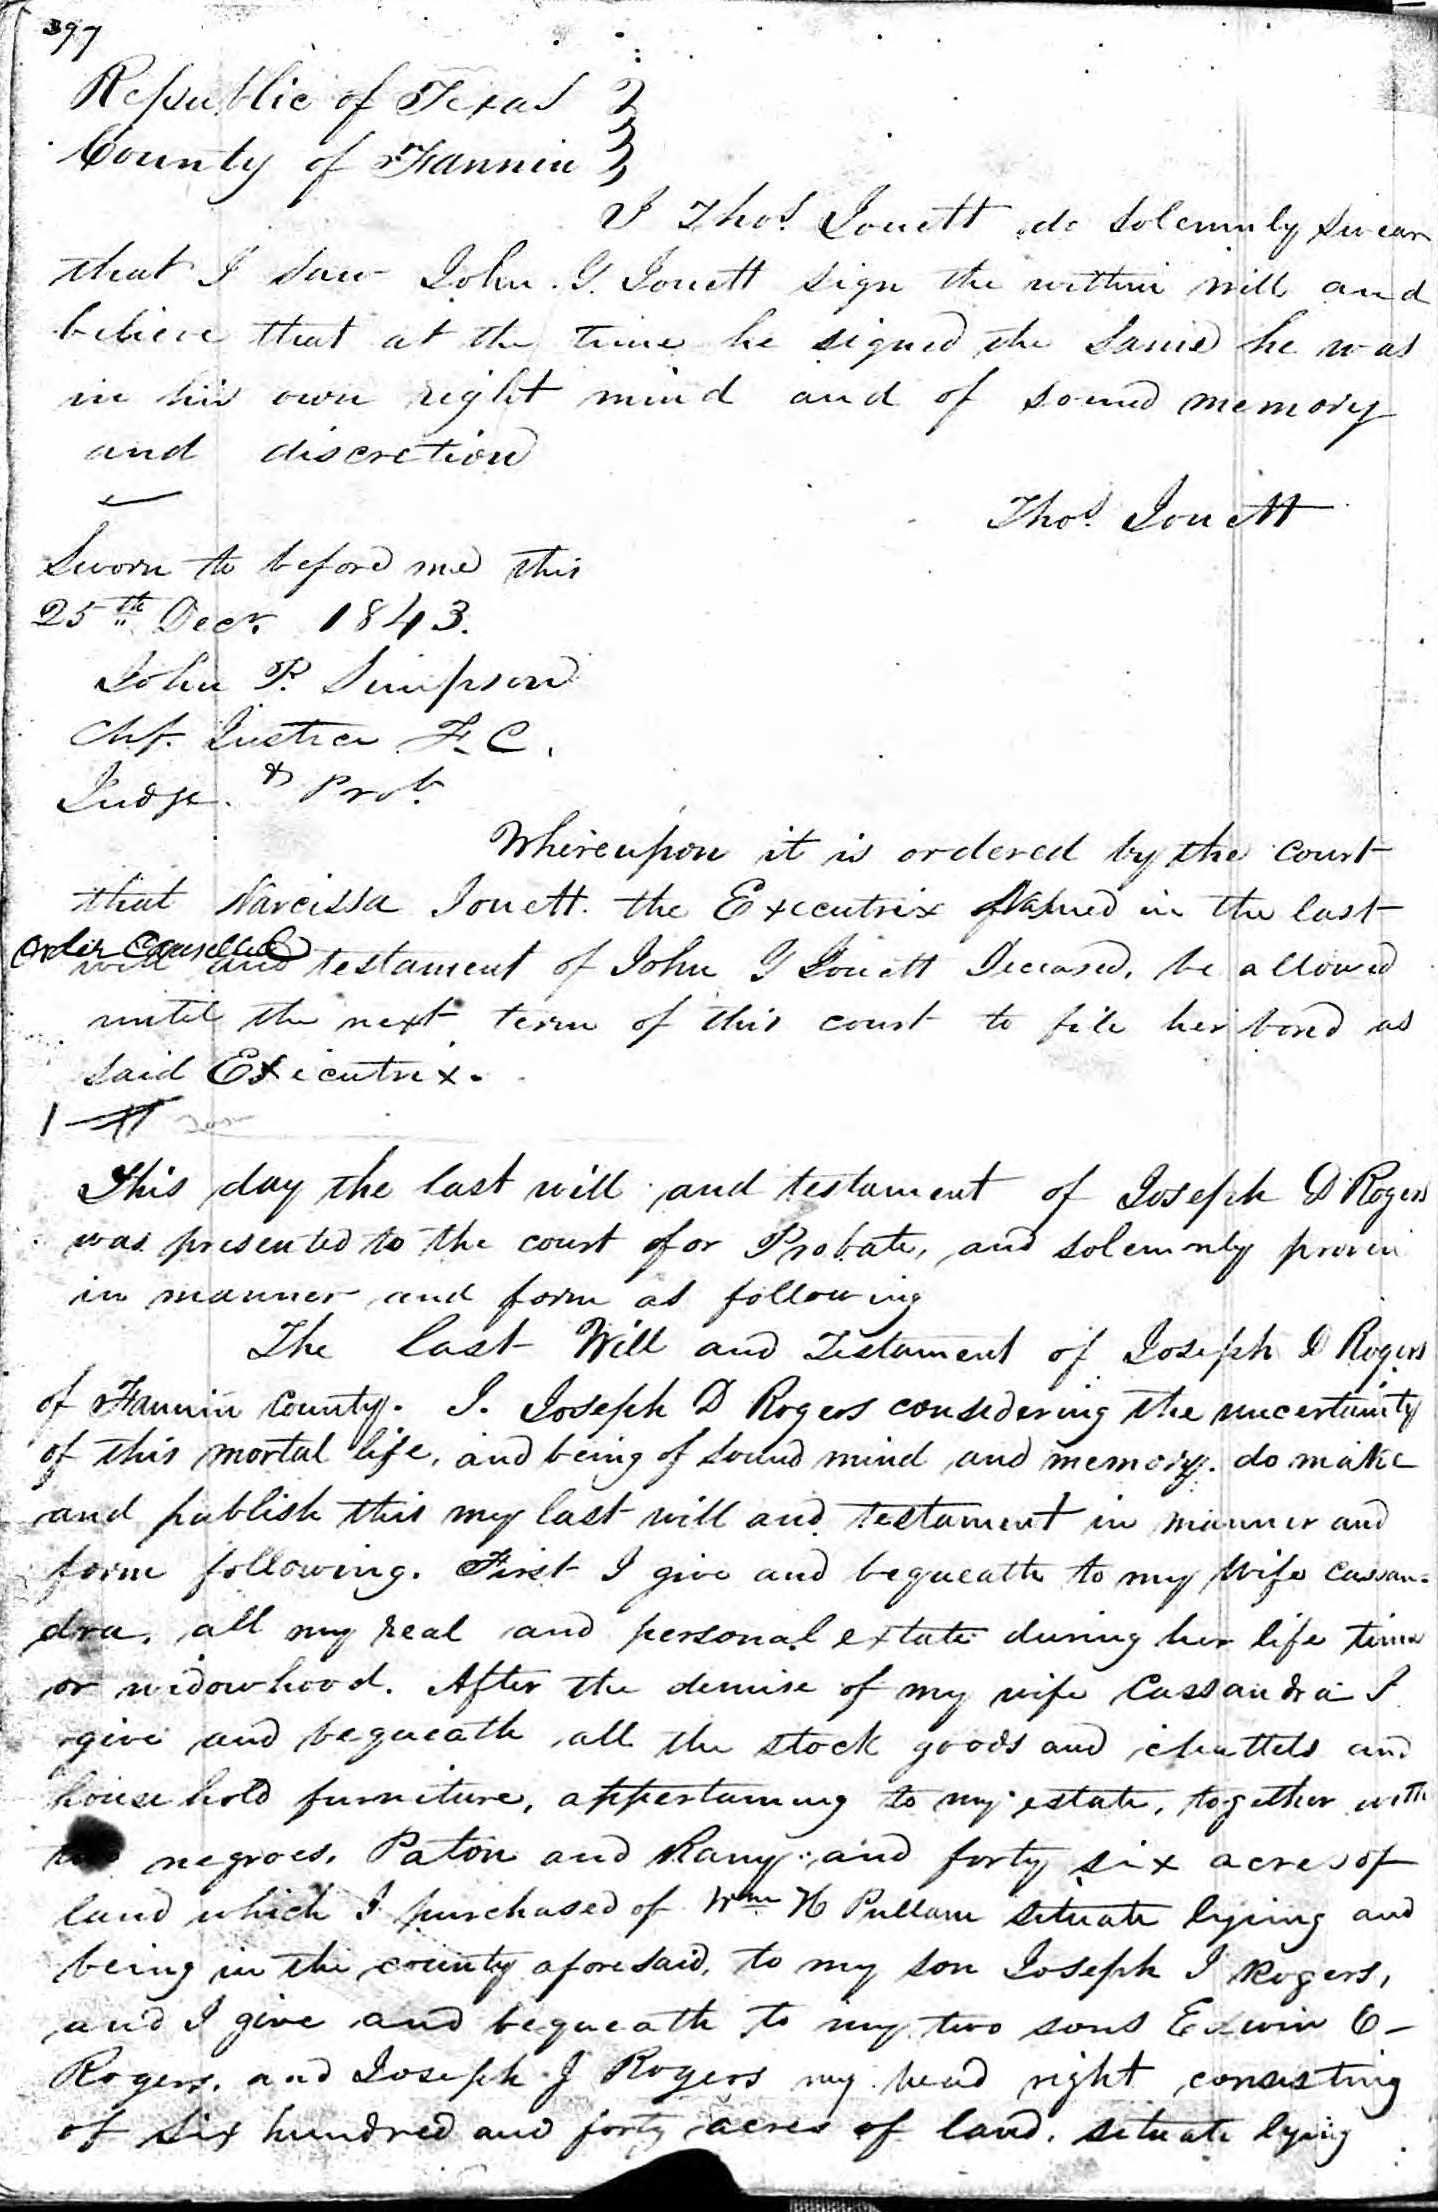 397
Republic of Texas
County of Fannin
I Thos. Jouett do solemnly swear
that I saw John G. Jouett sign the within will and
believe that at the time he signed the same he was
in his own right mind and of sound memory
and discretion
Thos. Jouett
Sworn to before me this
25th Decr. 1843.
John P. Simpson
Chf. Justice F. C.
Judge. & Prob.
Whereupon it is ordered by the court
that Narcissa Jouett. the Executrix Named in the last
Order Cancelled
will and testament of John G Jouett Deceased, be allowed
until the next term of this court to file her bond as
said Executrix.
This day the last will and testament of Joseph D Rogers
was presented to the court for Probate, and solemnly proven
in manner and form as following
The last Will and Testament of Joseph D Rogers
of Fannin County. I. Joseph D Rogers considering the uncertainty
of this mortal life, and being of sound mind and memory. do make
and publish this my last will and testament in manner and
form following. First I give and bequeath to my Wife Cassan=
dra, all my real and personal extate during her life time
or widowhood. After the demise of my wife Cassandra I
give and bequeath all the stock goods and chattels and
household furniture, appertaining to my estate, together with
negroes. Paton and Rany. and forty six acres of
land which I purchased of Wm H Pullam situate lying and
being in the county aforesaid, to my son Joseph J Rogers,
and I give and bequeath to my two sons Edwin C-
Rogers. and Joseph J Rogers my head right consisting
of six hundred and forty acres of land. situate lying